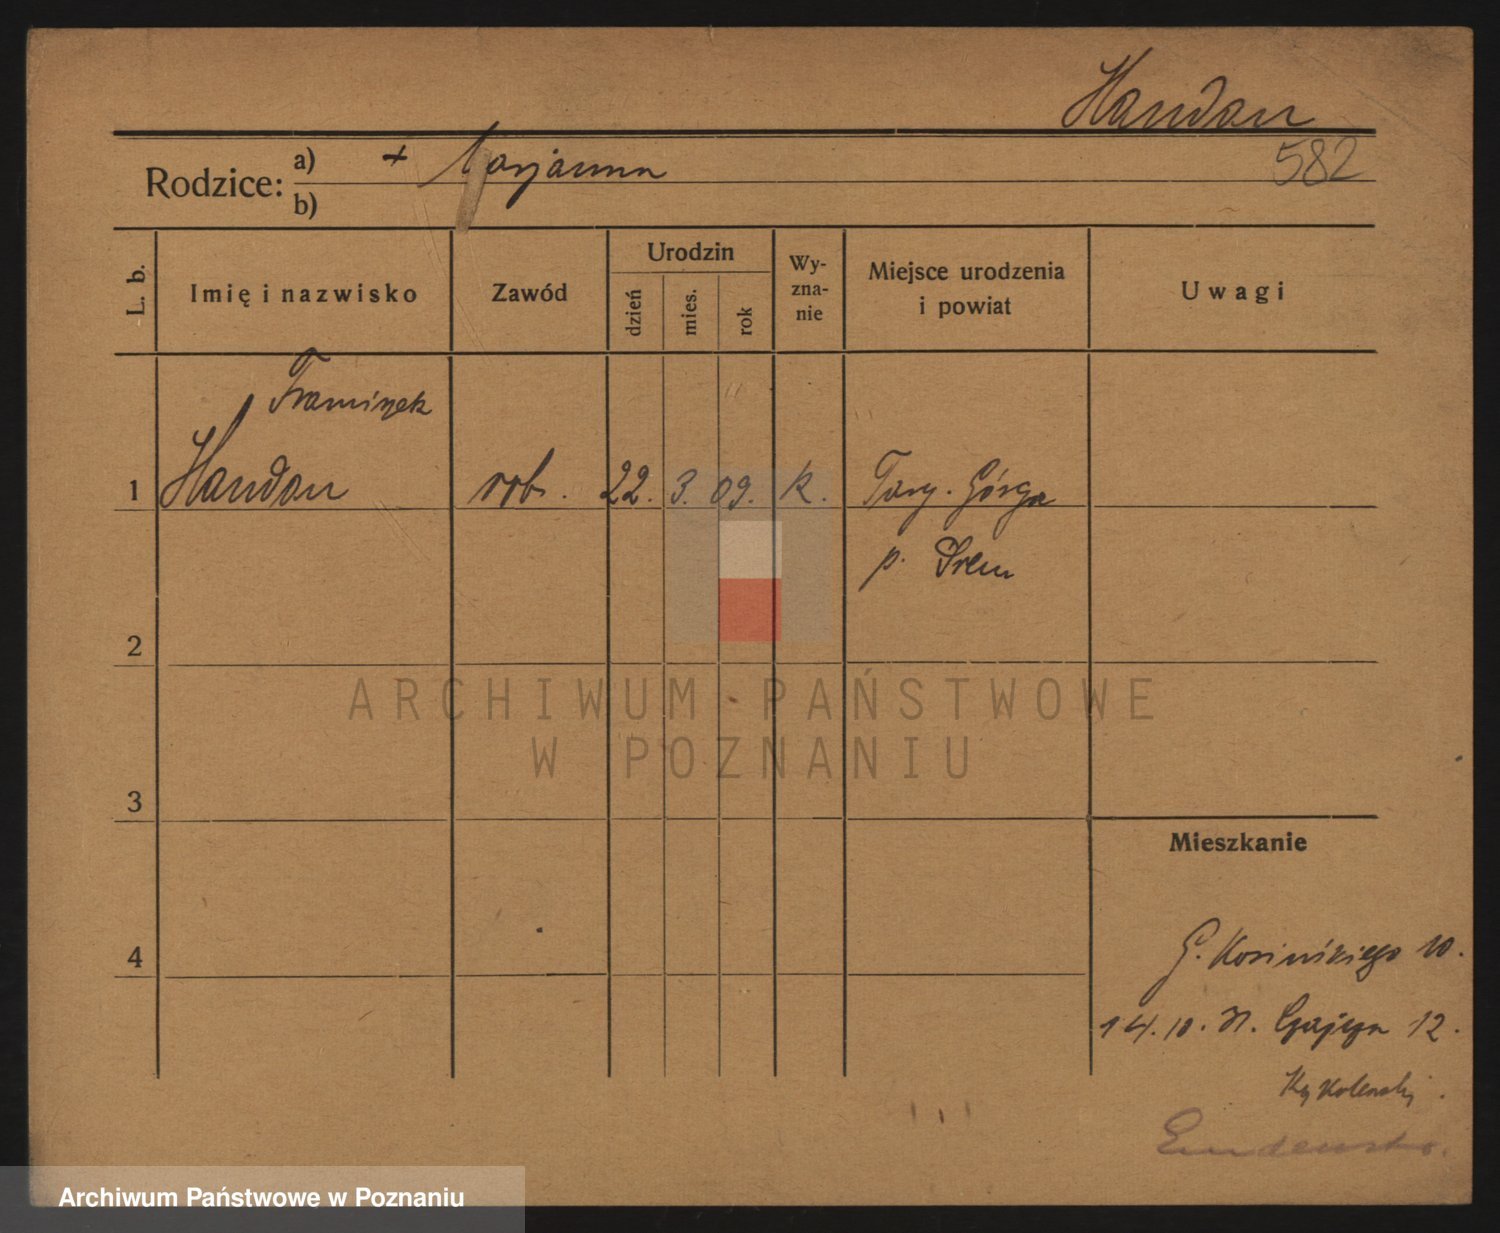 Handau
582
Rodzice: a) + Marjanna
b)
L. b.
Imię i nazwisko
Zawód
Urodzin
dzień
mies.
rok
Wy-
zna-
nie
Miejsce urodzenia
i powiat
Uwagi
Franciszek
1 Handau rob. 22. 3. 09. k. Targ. Górga
p. Śrem
2
ARCHIWUM PAŃSTWOWE
W POZNANIU
3
Mieszkanie
4
G. Kosińskiego 10.
14. 10. 31. 12.
Archiwum Państwowe w Poznaniu